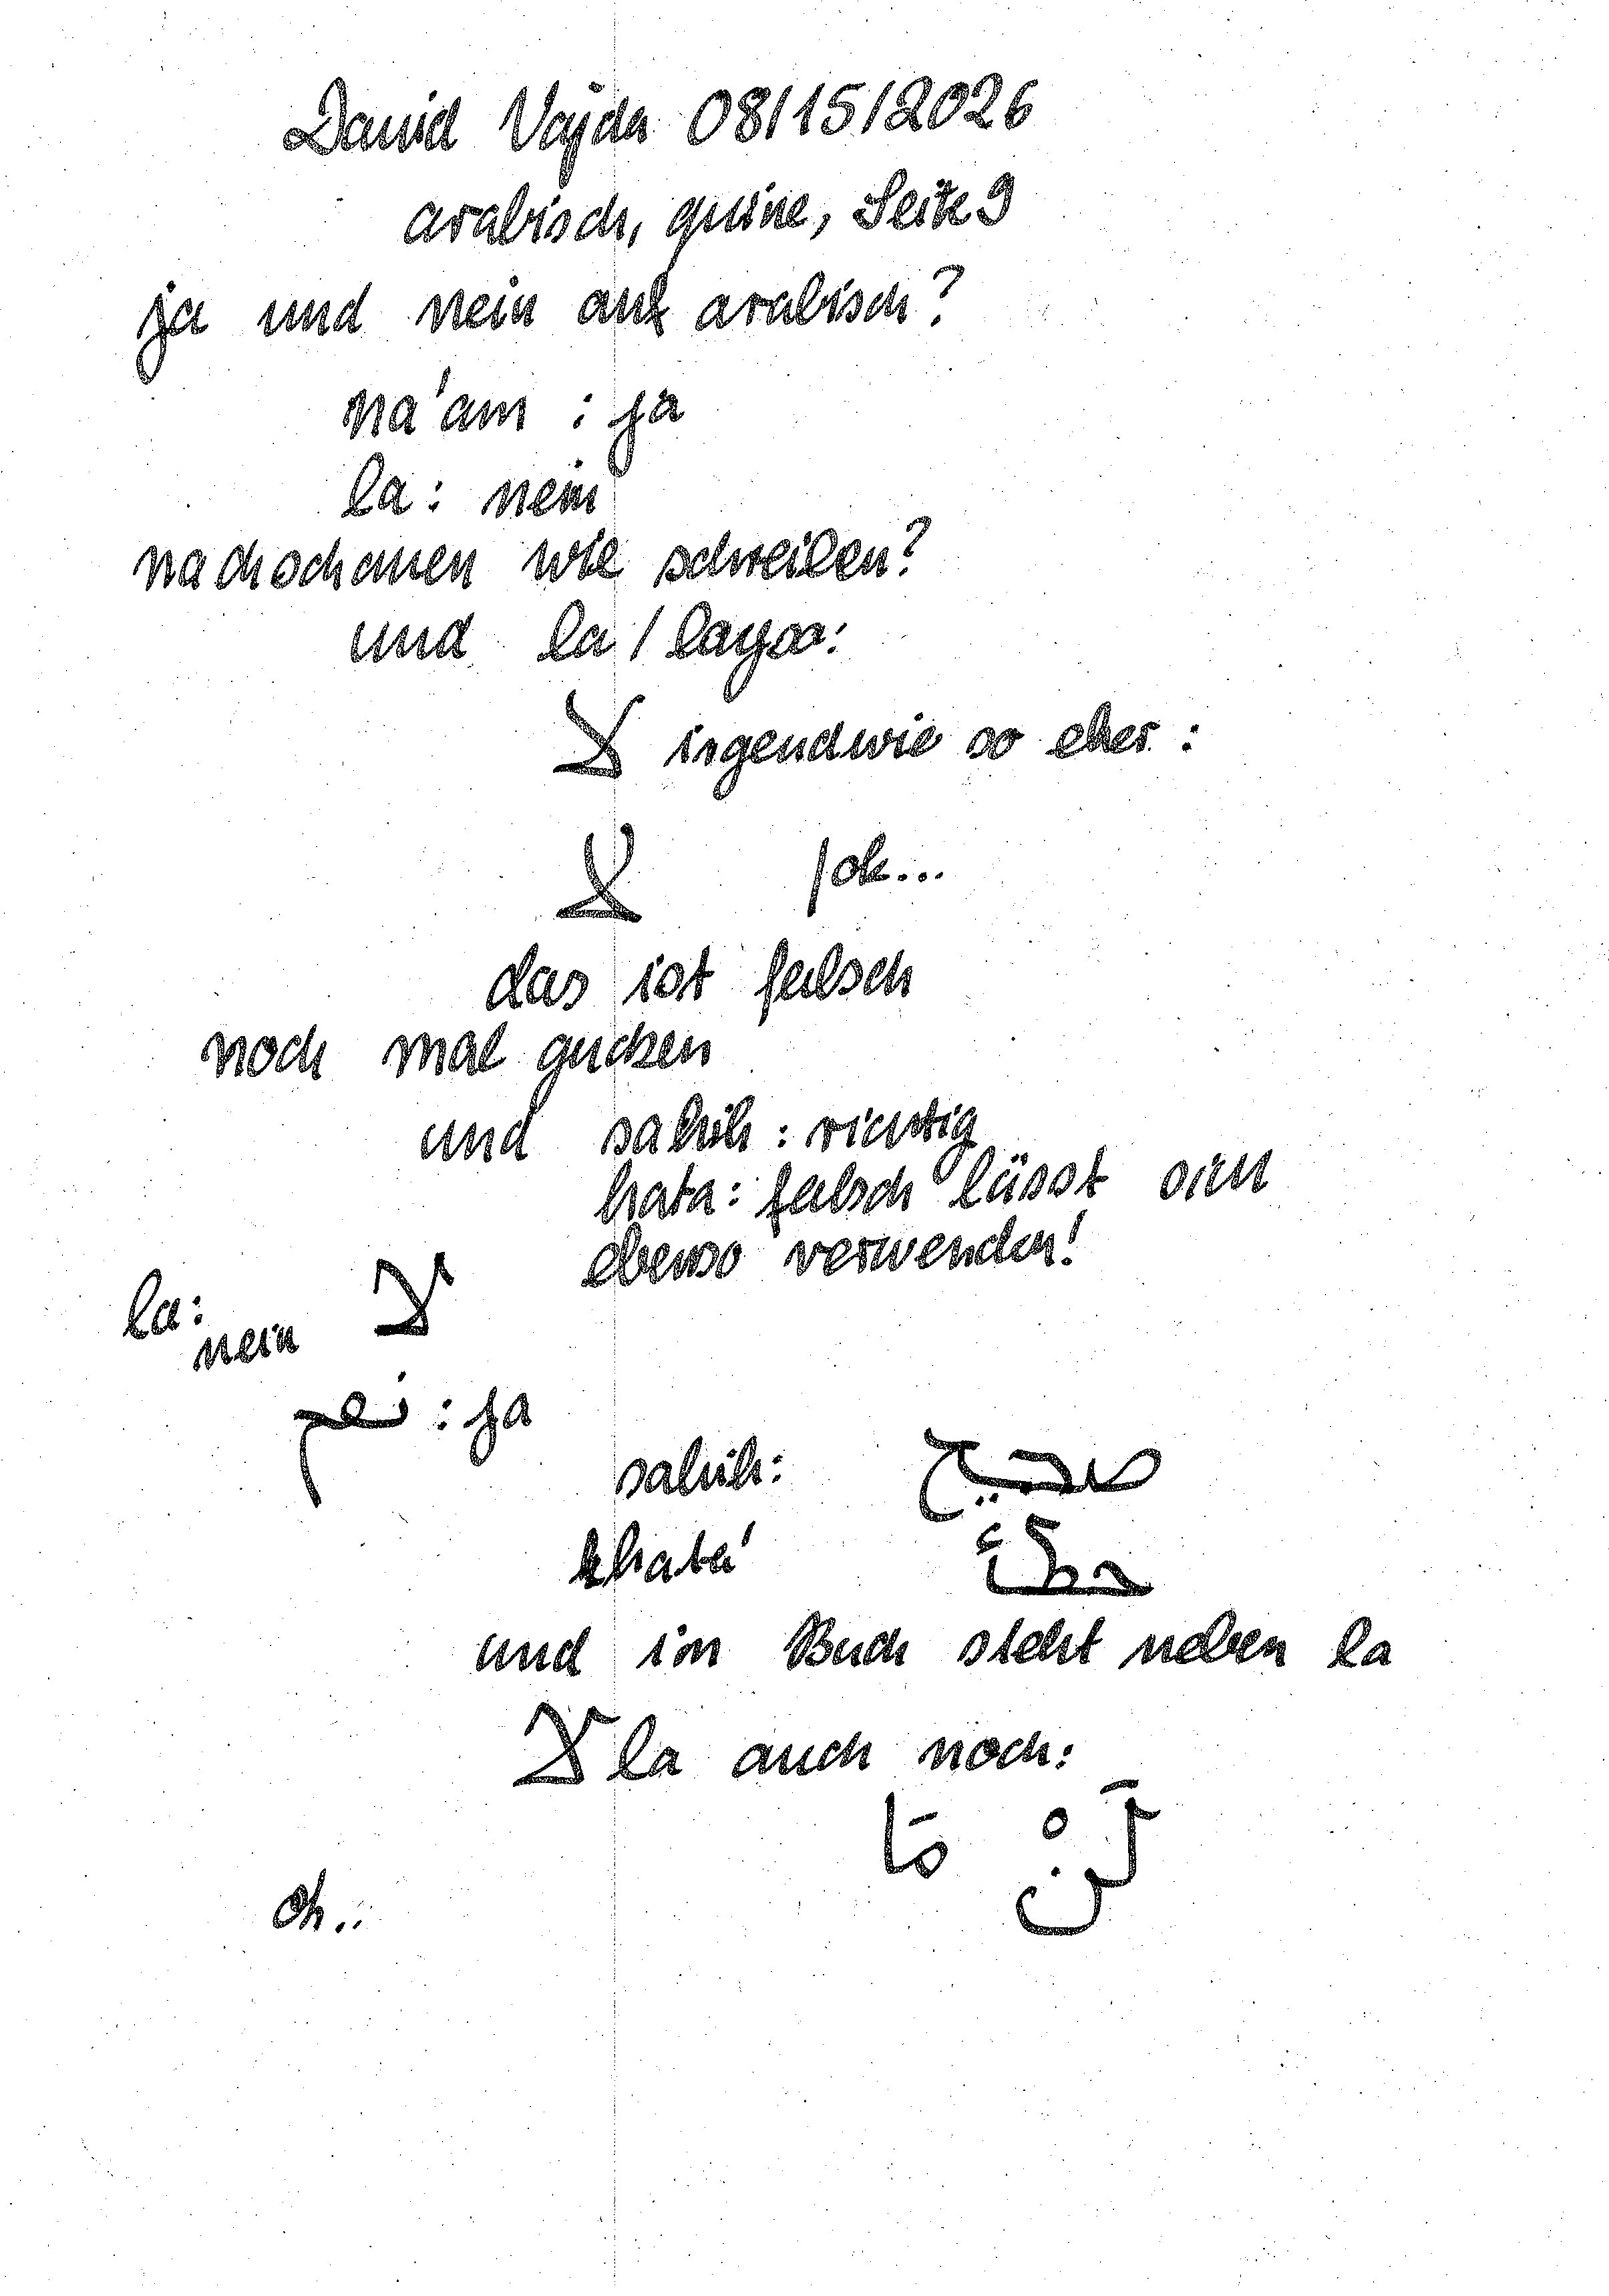 David Vajda 08/15/2026
arabisch, quine, Seite 9
ja und nein auf arabisch?
na'am : ja
la: nein
nachschauen wie schreiben?
und la / laysa:
لا irgendwie so eher :
لا /ok...
das ist falsch
noch mal gucken
und sahih : richtig
hata: falsch lässt sich
ebenso verwenden!
la: لا
nein
نعم : ja
sahih: صحيح
khata' حطأ
und im Buch steht neben la
لا la auch noch:
لَنْ مَا
oh..